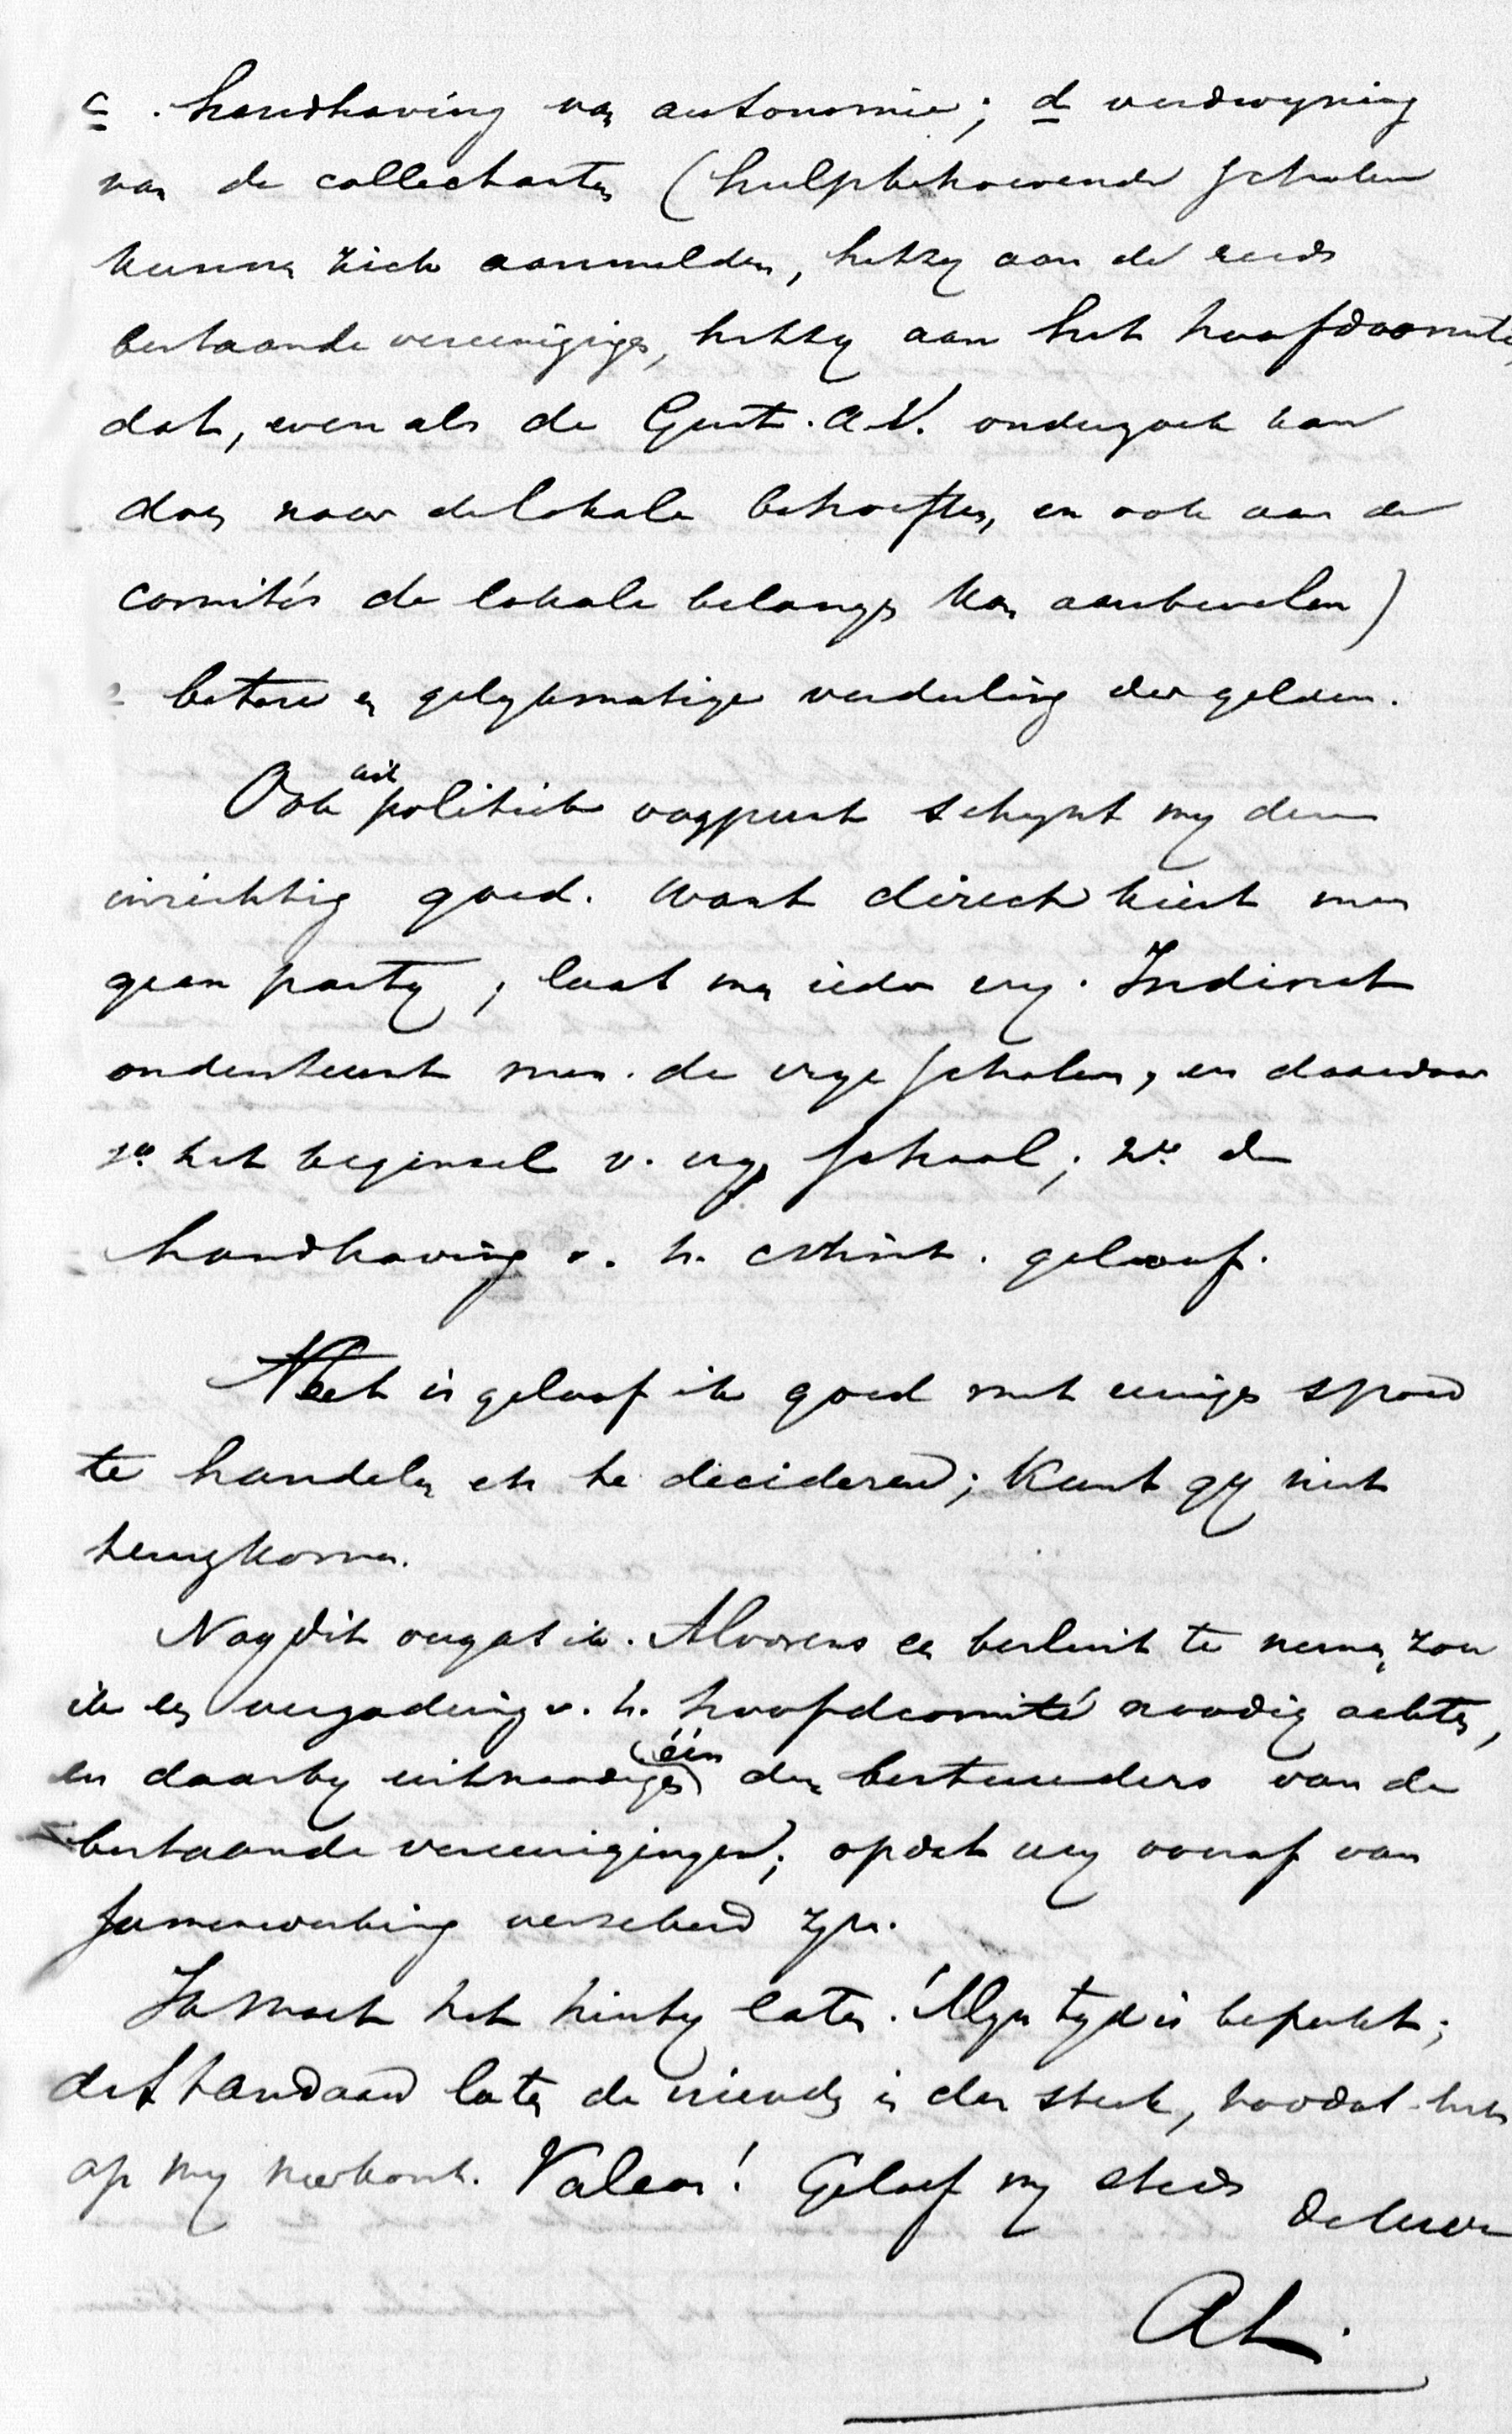 c. handhaving van autonomie; d verdwyning
van de collectanten (hulpbehoevende scholen
kunnen zich aanmelden, hetzy aan de reeds
bestaande vereenigingen, hetzy aan het hoofdcomité,
dat, even als de Gust. A.V. onderzoek kan
doen naar de lokale behoeften, en ook aan de
comités de lokale belangen kan aanbevelen)
e betere en gelykmatiger verdeeling der gelden.
Ook uit politiek oogpunt schynt my deze
inrichting goed. Want direct kiest men
geen party, laat men ieder vry. Indirect
ondersteunt men de vrye scholen, en daardoor
1o het beginsel v. vrye school; 2o de
handhaving v. h. Christ. geloof.
Het is geloof ik goed met eenigen spoed
te handelen en te decideren; kunt gy niet
terugkomen.
Nog dit vergat ik. Alvorens een besluit te nemen, zou
ik een vergadering v. h. hoofdcomité noodig achten,
en daarby uitnoodigen één der bestuurders van de
bestaande vereenigingen; opdat wy vooraf van
samenwerking verzekerd zyn.
Ik moet het hierby laten. Myn tyd is beperkt;
de Standaard laten de vrienden in den steek, zoodat het
op my neerkomt. Valeas! Geloof my steeds
de Uwe
AL.